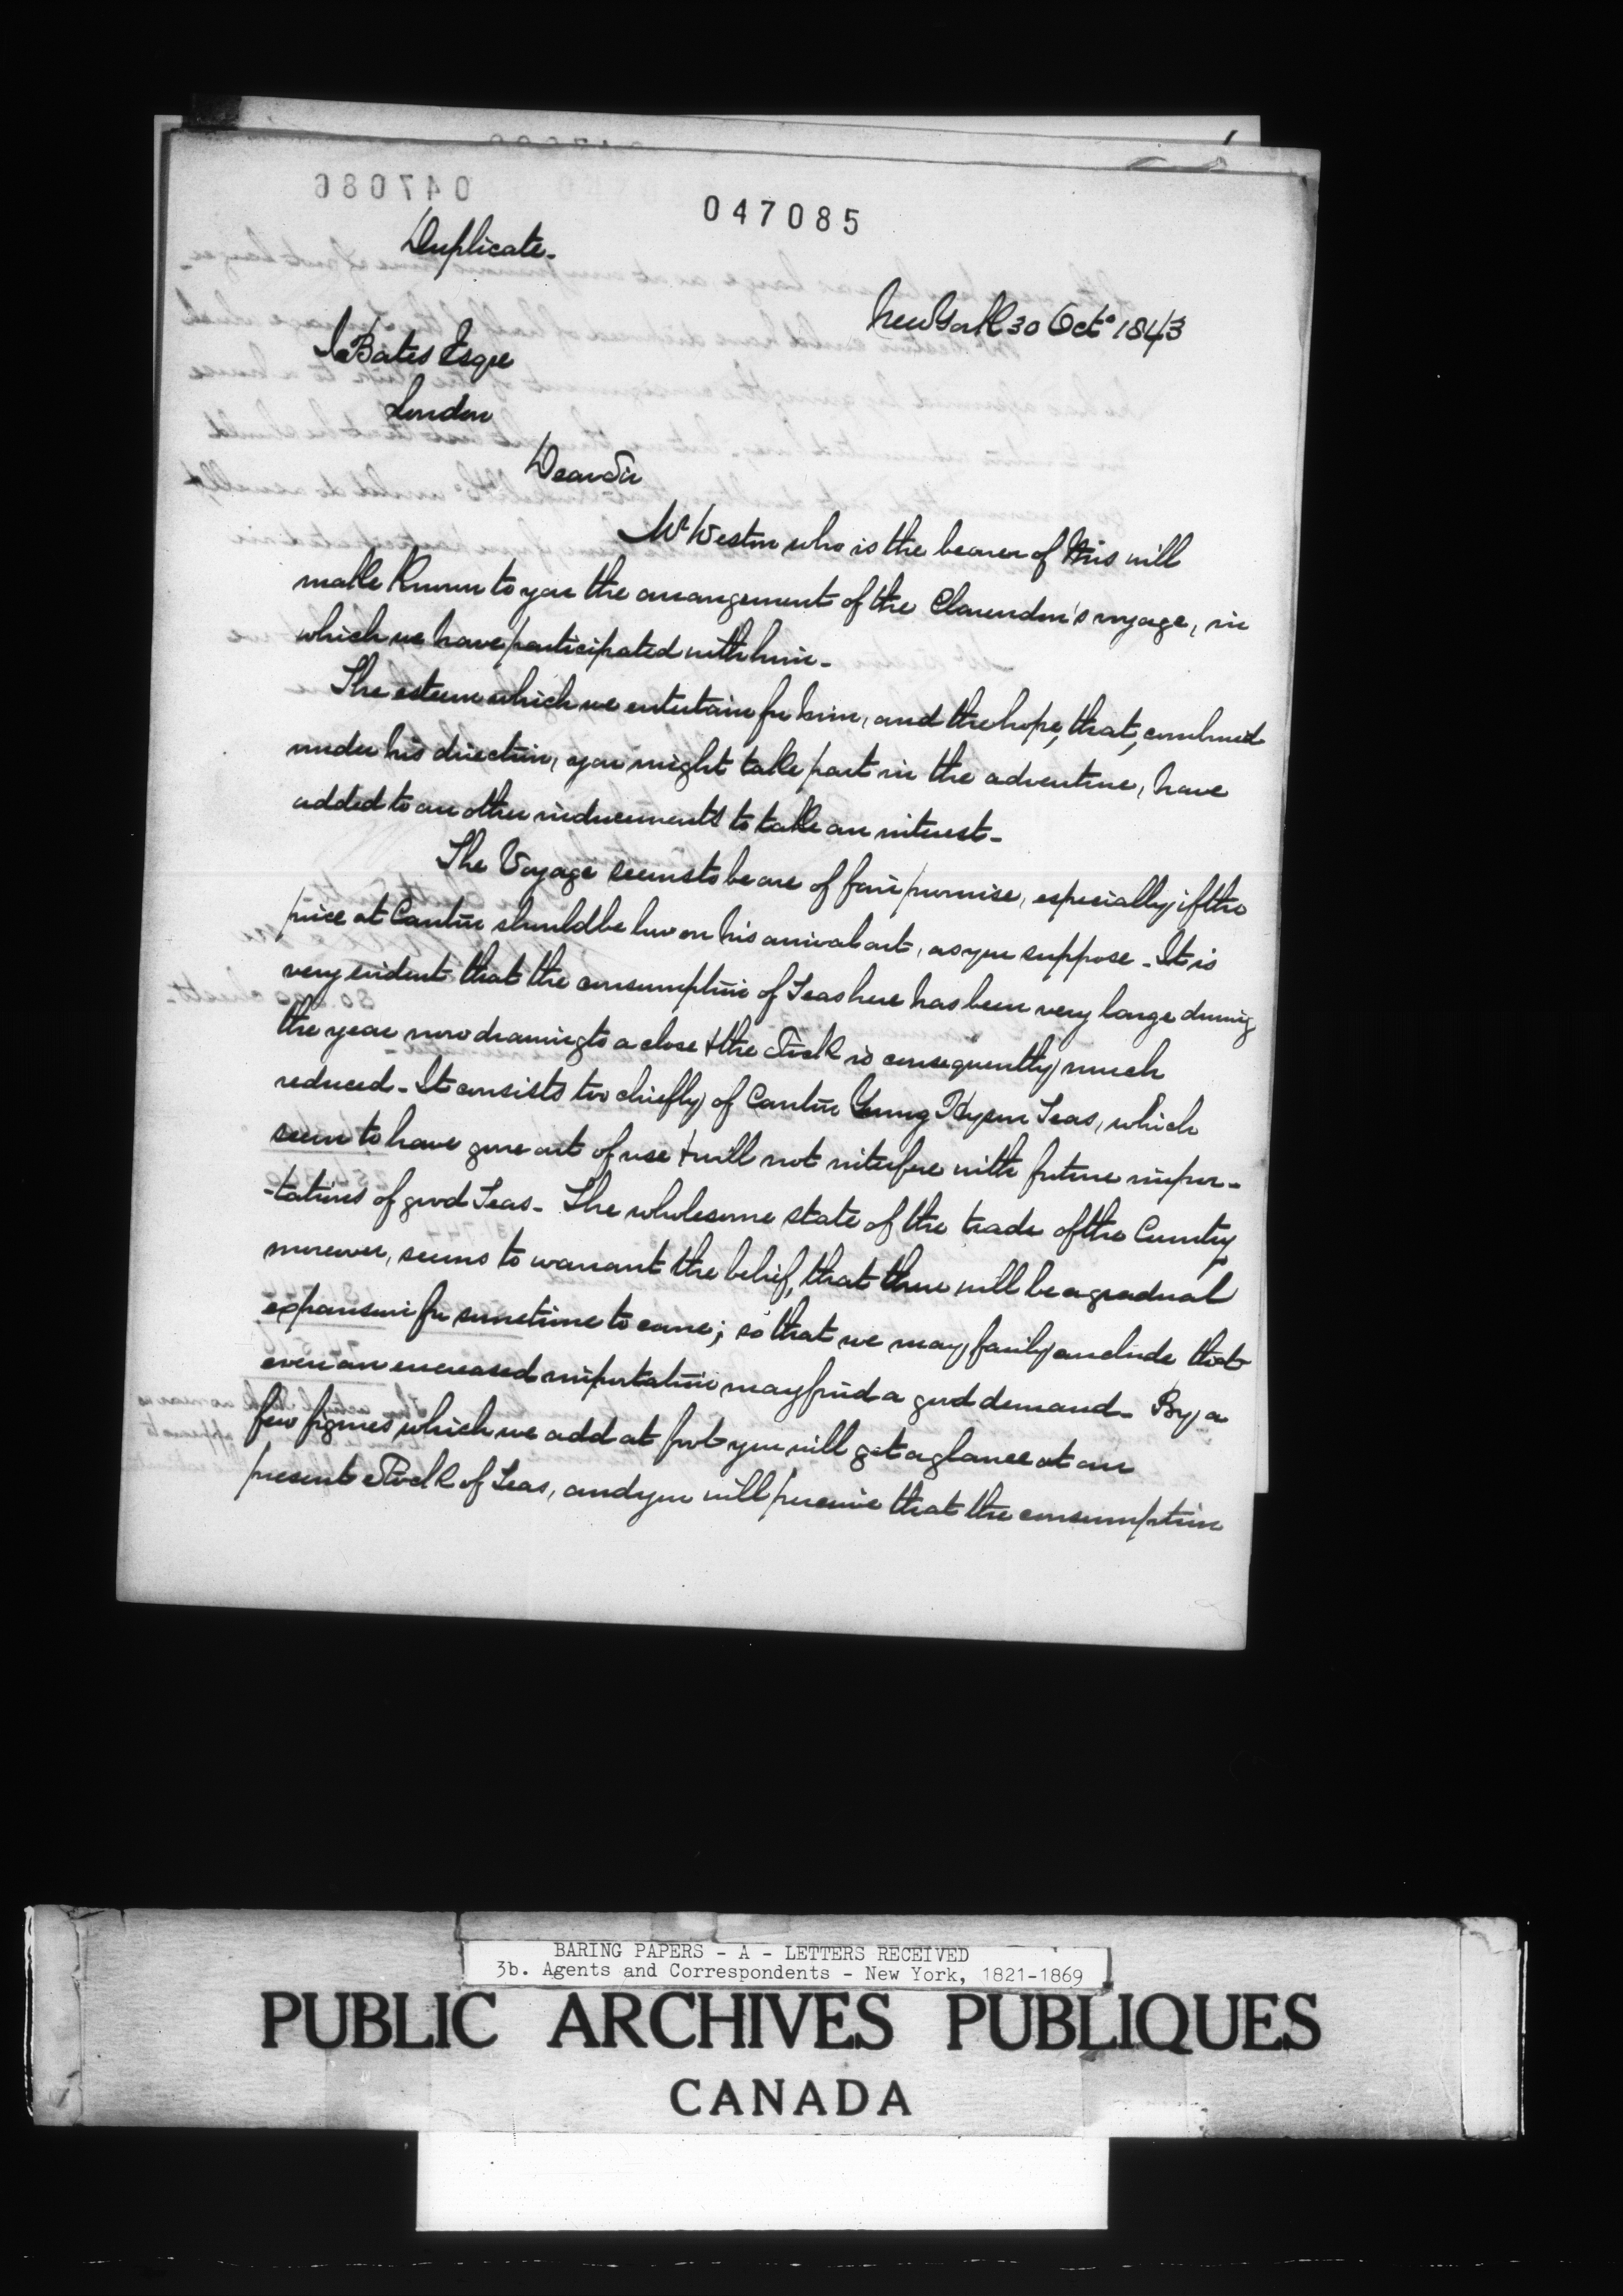 047085
Duplicate-
New York 30 Octo 1843
J Bates Esqre
London
Dear Sir
Mr Weston who is the bearer of this will
make known to you the arrangement of the Clarendon's voyage, in
which we have participated with him-
The esteem which we entertain for him, and the hope, that, combined
under his direction, you might take part in the adventure, have
added to our other inducements to take an interest-
The Voyage seems to be one of fair promise, especially, if the
price at Canton should be low on his arrival out, as you suppose- It is
very evident that the consumption of Teas here has been very large during
the year now drawing to a close & the Stock is consequently much
reduced- It consists too chiefly of Canton Young Hyson Teas, which
seem to have gone out of use & will not interfere with future impor-
-tations of good Teas- The wholesome state of the trade of the Country,
moreover, seems to warrant the belief, that there will be a gradual
expansion for sometime to come; so that we may fairly conclude that
even an increased importation may find a good demand- By a
few figures which we add at foot you will get a glance at our
present Stock of Teas, and you will perceive that the consumption
BARING PAPERS - A - LETTERS RECEIVED
3b. Agents and Correspondents - New York, 1821-1869
PUBLIC ARCHIVES PUBLIQUES
CANADA